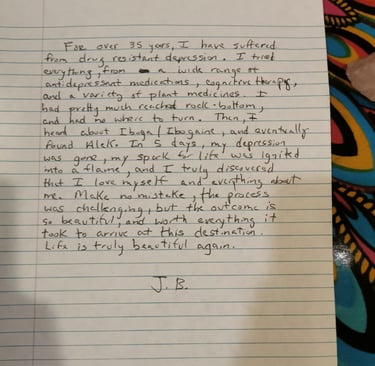 For over 35 years, I have suffered
from drug resistant depression. I tried
everything, from a wide range of
antidepressant medications, cognitive therapy,
and a variety of plant medicines. I
had pretty much reached rock-bottom,
and had no where to turn. Then, I
heard about Iboga/Ibogaine, and eventually
found Alek. In 5 days, my depression
was gone, my spark for life was ignited
into a flame, and I truly discovered
that I love myself and everything about
me. Make no mistake, the process
was challenging, but the outcome is
so beautiful, and worth everything it
took to arrive at this destination.
Life is truly beautiful again.
J. B.